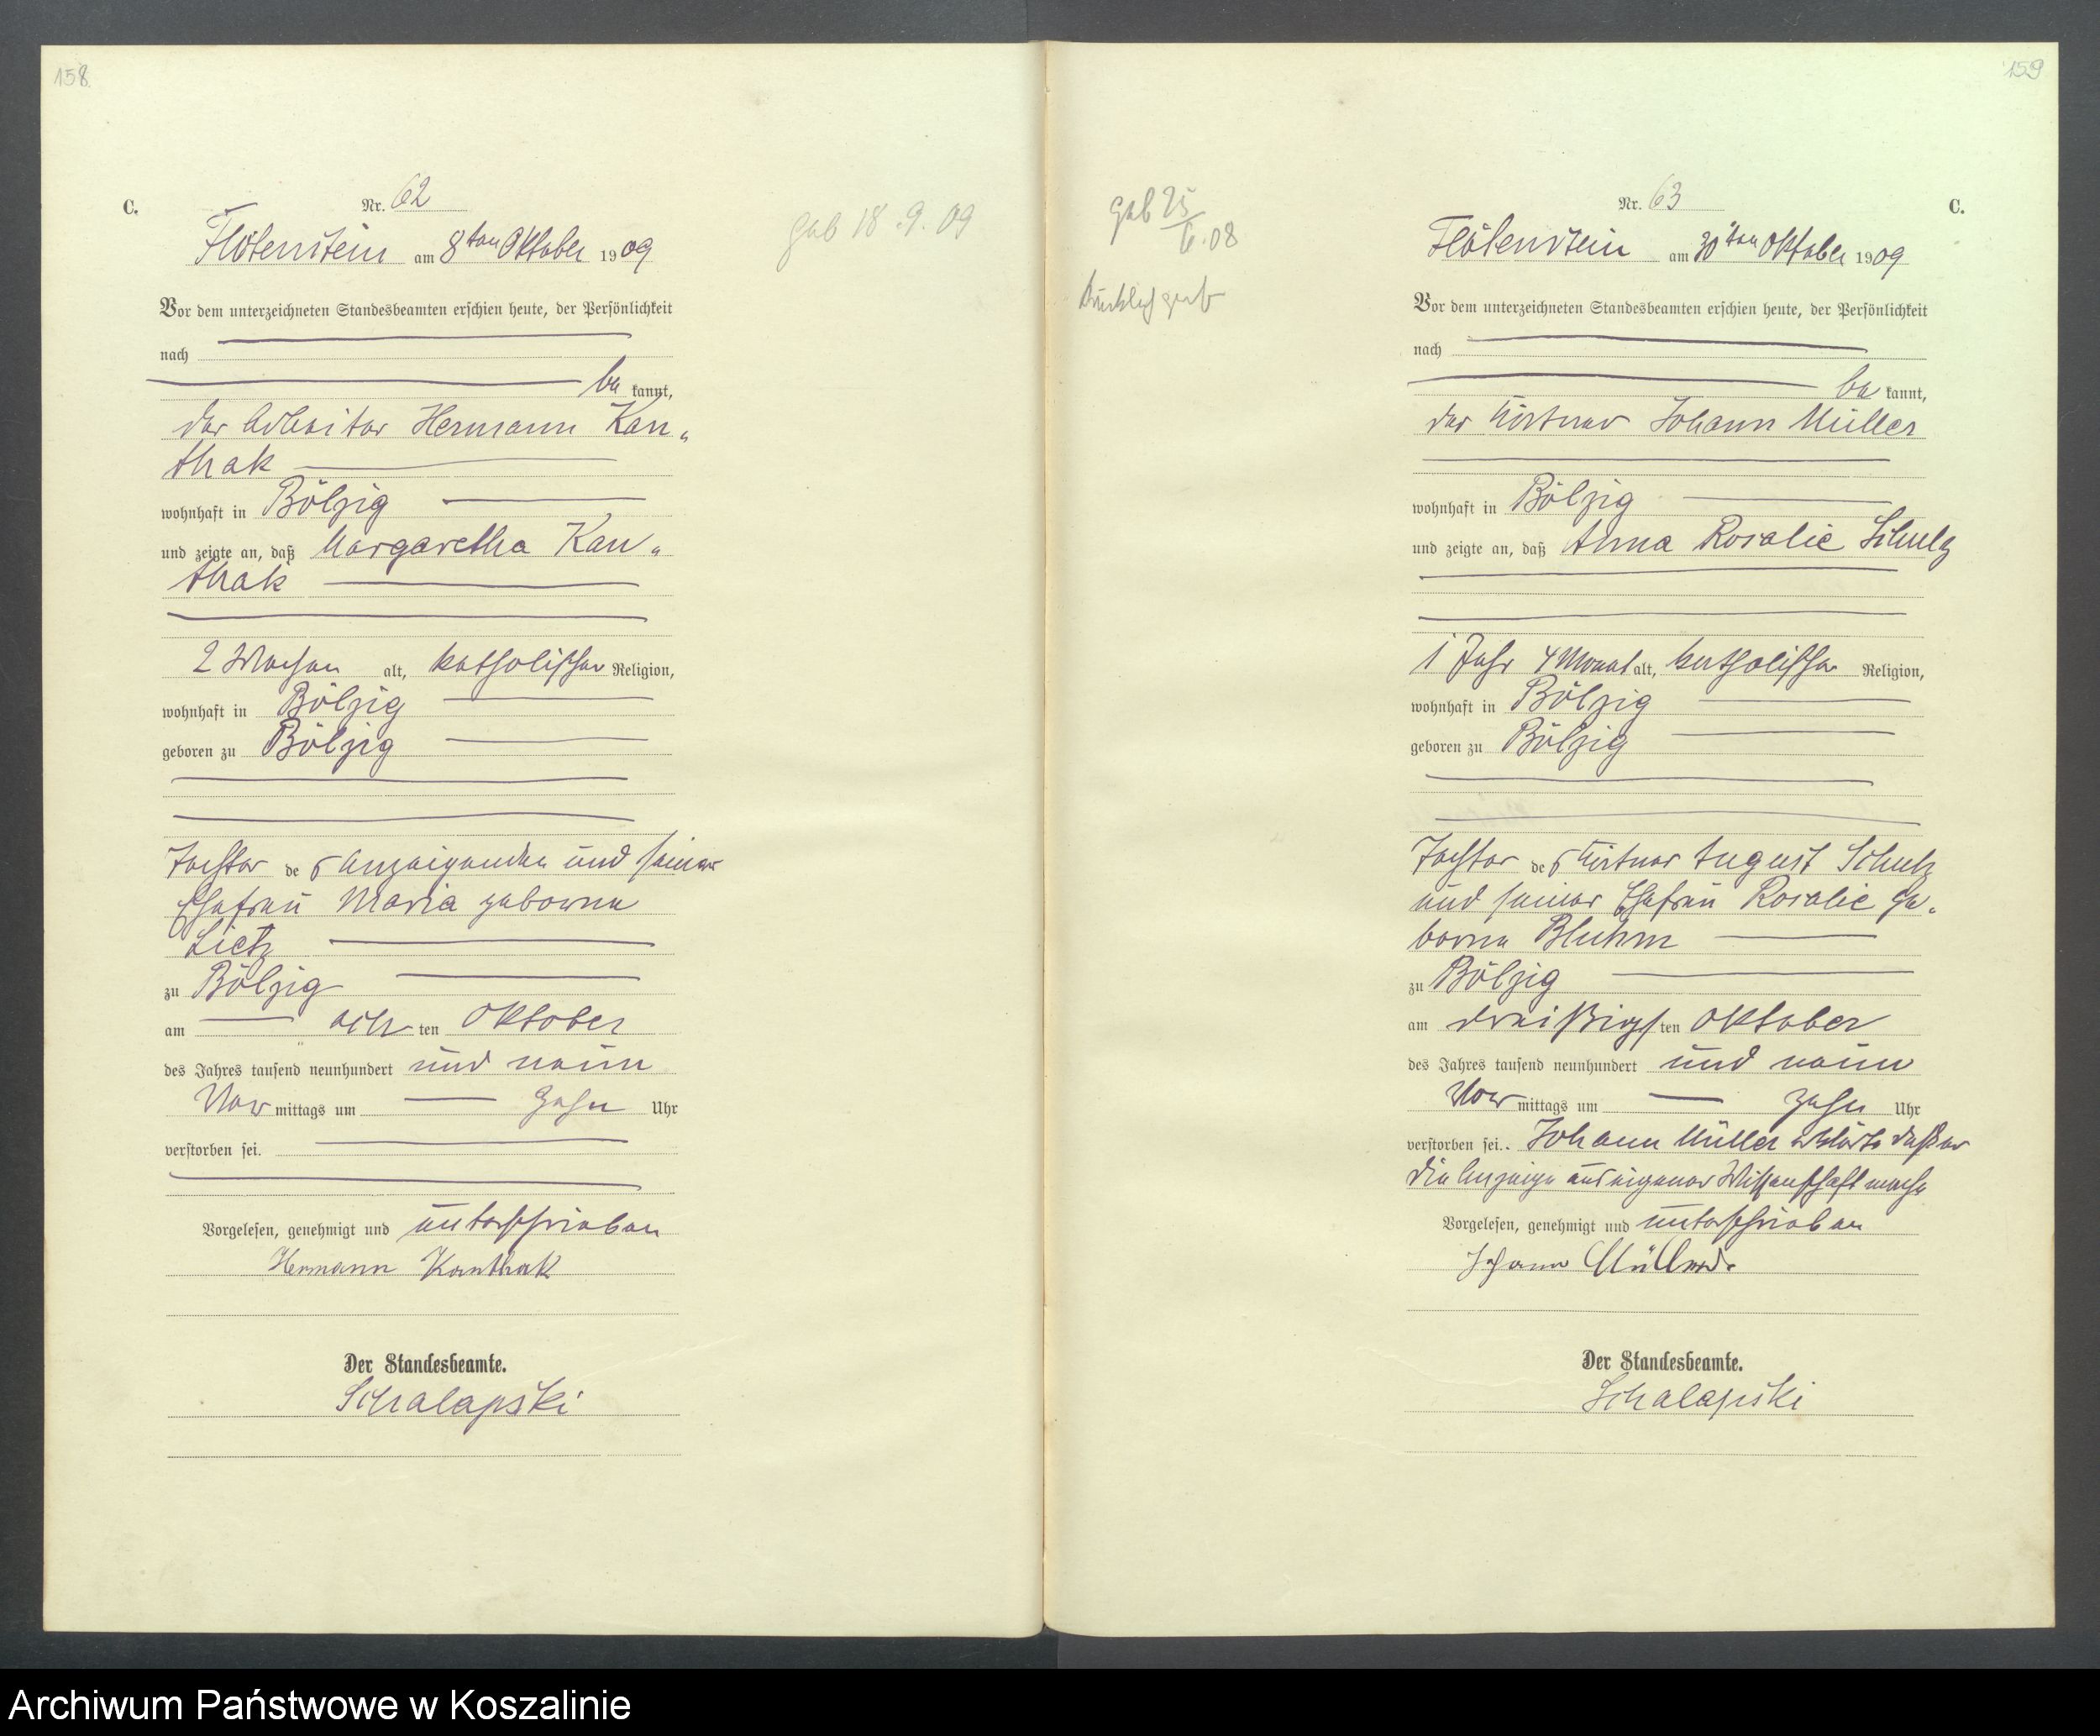 158
C.
Nr. 62
Flötenstein am 8ten Oktober 1909
Vor dem unterzeichneten Standesbeamten erschien heute, der Persönlichkeit
nach
be kannt,
der Arbeiter Hermann Kan„
thak
wohnhaft in Bölzig
und zeigte an, daß Margaretha Kan„
thak
2 Wochen alt, katholischer Religion,
wohnhaft in Bölzig
geboren zu Bölzig
Tochter des Anzeigenden und seiner
Ehefrau Maria geborne
Lietz
zu Bölzig
am ach ten Oktober
des Jahres tausend neunhundert und neun
Vor mittags um zehn Uhr
verstorben sei.
Vorgelesen, genehmigt und unterschrieben
Hermann Kanthak
Der Standesbeamte.
Schalapski
geb 18.9.09
159
geb 25/6.08
geb
Nr. 63
C.
Flötenstein am 30ten Oktober 1909
Vor dem unterzeichneten Standesbeamten erschien heute, der Persönlichkeit
nach
be kannt,
der Johann Müller
wohnhaft in Bölzig
und zeigte an, daß Anna Rosalie Schulz
1 Jahr 4 Monat alt, katholischer Religion,
wohnhaft in Bölzig
geboren zu Bölzig
Tochter des August Schulz
und seiner Ehefrau Rosalie ge„
borne Bluhm
zu Bölzig
am dreißigs ten Oktober
des Jahres tausend neunhundert und neun
Vor mittags um zehn Uhr
verstorben sei.. Johann Müller erklärte daß er
die Anzeige aus eigener Wissenschaft mache
Vorgelesen, genehmigt und unterschrieben
Johann Müller
Der Standesbeamte.
Schalapski
Archiwum Państwowe w Koszalinie